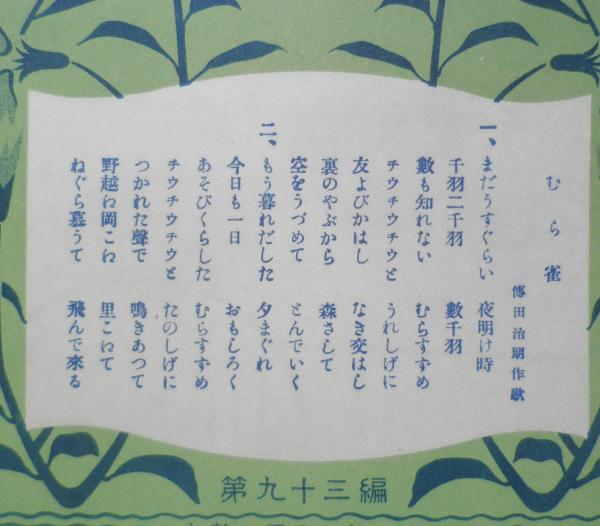 むら雀
傳田治朗作歌
一、まだうすぐらい 夜明け時
千羽二千羽 數千羽
數も知れない むらすずめ
チウチウチウと うれしげに
友よびかはし なき交はし
裏のやぶから 森さして
空をうづめて とんでいく
二、もう暮れだした 夕まぐれ
今日も一日 おもしろく
あそびくらした むらすずめ
チウチウチウと たのしげに
つかれた聲で 鳴きあつて
野越ね岡こね 里こねて
ねぐら慕うて 飛んで來る
第九十三編